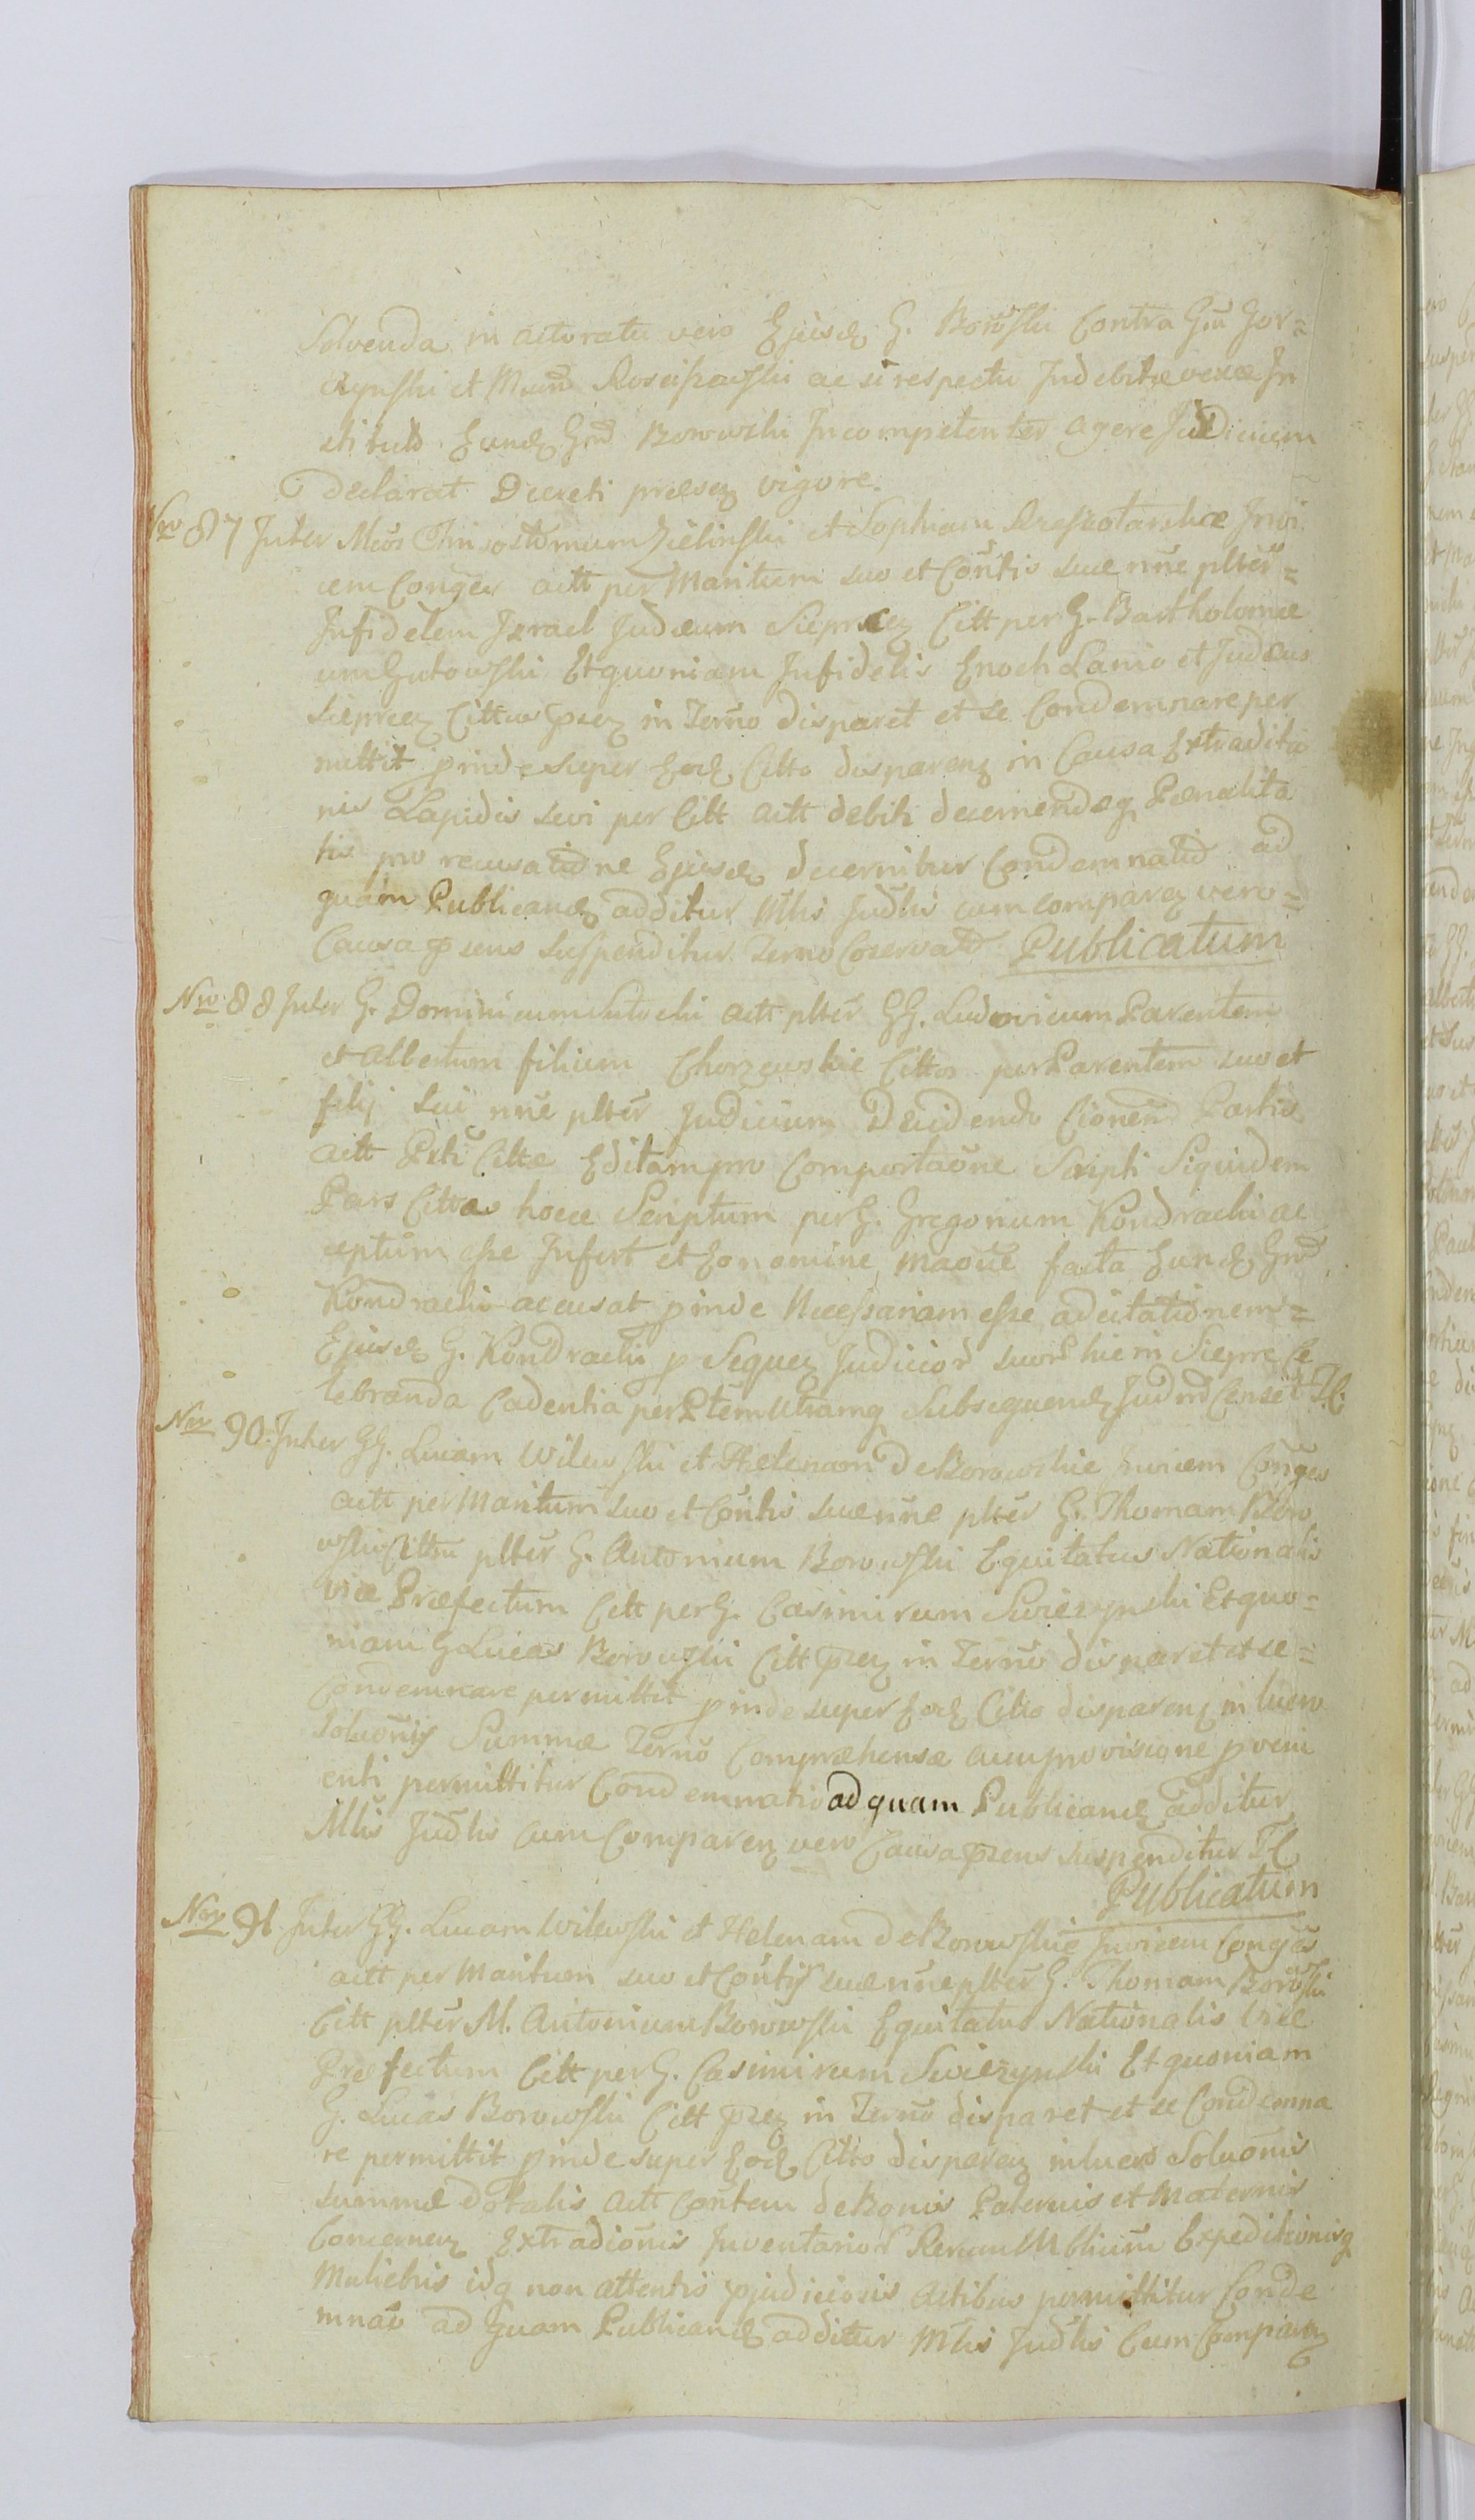 Solvenda in actoratu vero Ejusd G. Borowski Contra Gnu Gor=
czynski et Mand Rosciszewski ac si respectu Indebitæ vexæ In
stituto Eund Gnd Borowski Incompetenter agere Judicium
declarat Decreti præseñ vigore.
Nro 87 Inter Mcos Chrisostomum Zielinski et Sophiam Invi
cem Conges actt per Maritum suo et Contis suæ nne plter=
Infidelem Izrael Judæum Sieprceñ Citt per G. Bartholomæ
um Gutowski Et quoniam Infidelis Enoch Lanio et Judæus
Sieprceñ Cittus præñ in Termo disparet et se Condemnare per
mittit pinde super Eod Citto dispareñ in Causa Extraditio
nis Lapidis sevi per Citt actt debiti decernendæq Pænalita
tis pro recusatione Ejusd decernitur Condemnatio ad
quam Publicand additur Mtlis Judlis cum compareñ vero=
Causa præsens suspenditur Termo Coservato Publicatum
Nro 88 Inter G. Dominicum actt plter GG. Ludovicum Parentem
et Albertum filium Chorzewskie Cittos per Parentem suo et
filij sui nne plter Judicium Decidendo Cionem Partis
actt Parti Cittæ Editam pro Comportaone Scripti Siquidem
Pars Citta hocce Scriptum per G. Gregorium Kondracki ac
ceptum esse Infert et Eo nomine maoue facta Eund Gnd
Kondracki accusat pinde Necessariam esse adcitationem=
Ejusd G. Kondracki p Sequeñ Judicior suor hic in Sieprc Ce
lebranda Cadentia per Ptem Utramq Subsequend Judm Censet T.C.
Nro 90. Inter GG. Lucam Wilewski et Helenam de Borowskie Invicem Conges
actt per Maritum suo et Contis suæ nne plter G. Thomam Boro
wski Cittu plter G. Antonium Borowski Equitatus Nationalis
vice Præfectum Citt per G. Casimirum Swiezynski Et quo=
niam G Lucas Borowski Citt præñ in Termo disparet et se=
Condemnare permittit pinde super Eod Citto dispareñ in lucro
solutionis Summæ Termo Compræhensæ cum provisione p veni
enti permittitur Condemnatio ad quam Publicand additur
Mtlis Judlis cum Compareñ vero Causa præsens suspenditur T.C.
Publicatum
Nro 91. Inter GG. Lucam Wilewski et Helenam de Borowskie Invicem Conges
actt per Maritum suo et Contis suæ nne plter G. Thomam Borowski
Citt plter M. Antonium Borowski Equitatus Nationalis Vice
Præfectum Citt per G. Casimirum Swiezynski Et quoniam
G. Lucas Borowski Citt præñ in Termo disparet et se Condemna
re permittit pinde super Eod Citto dispareñ in lucro Soluonis
summæ dotalis actt Contem de Bonis Paternis et Maternis
Concerneñ Extradionis Inventarior Rerum Mblium Expeditionisq
Muliebris idq non attentis pjudiciosis actibus permittitur Conde
mnao ad quam Publicand additur Mtlis Judlis Cum Compareñ